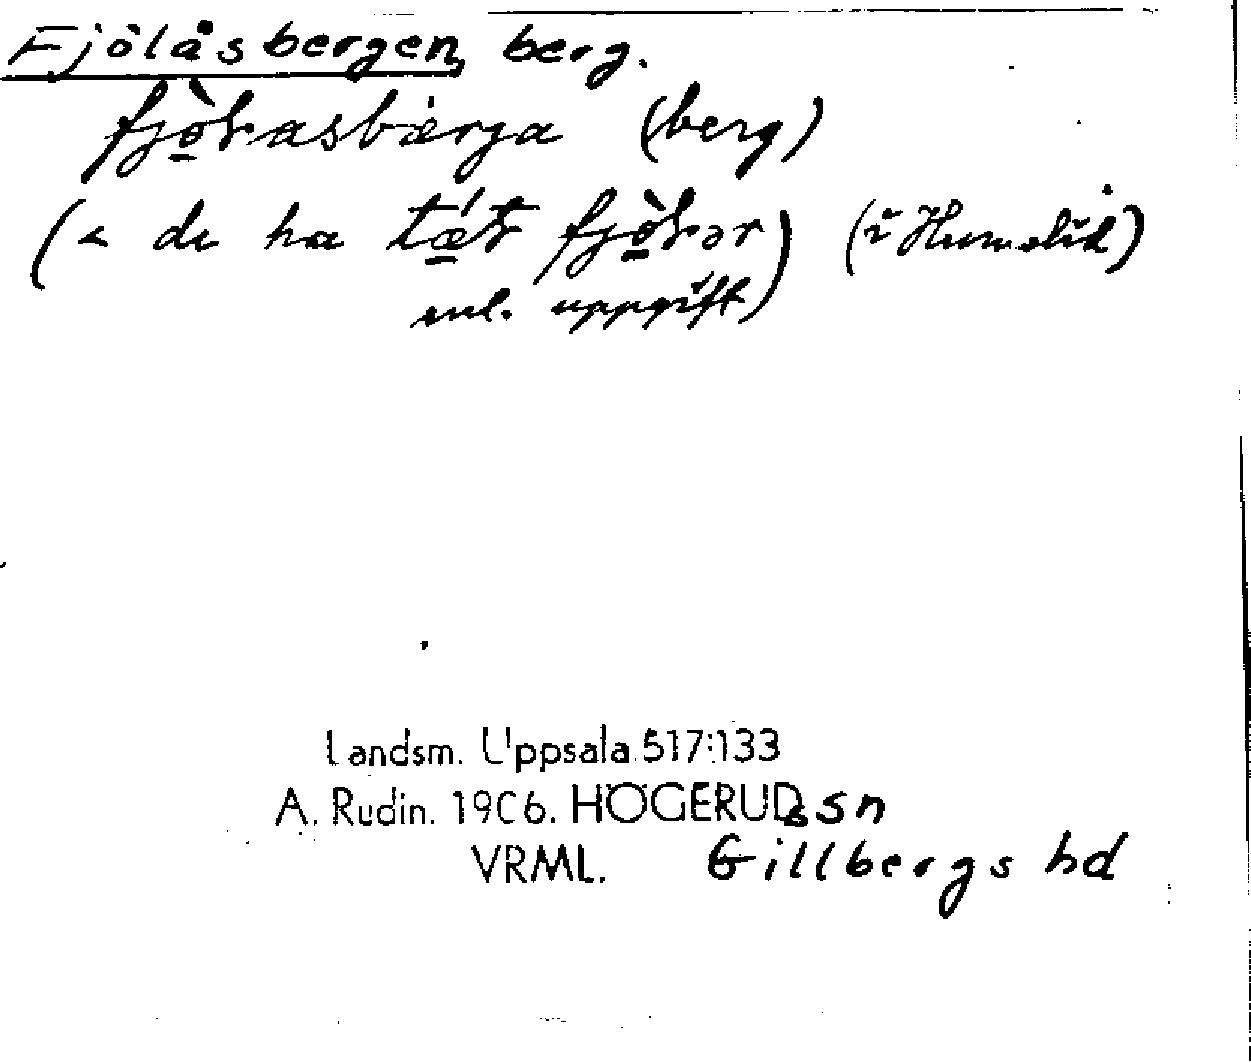 Fjölåsbergen, berg.
fjò̱ɽasbærga (berg)
(< de ha tǽ̱ɽ fjò̱ɽər) (i Humelid)
enl. uppgift)
Landsm. Uppsala 517:133
A. Rudin. 1906. HÖGERUDs sn
VRML. Gillbergs hd